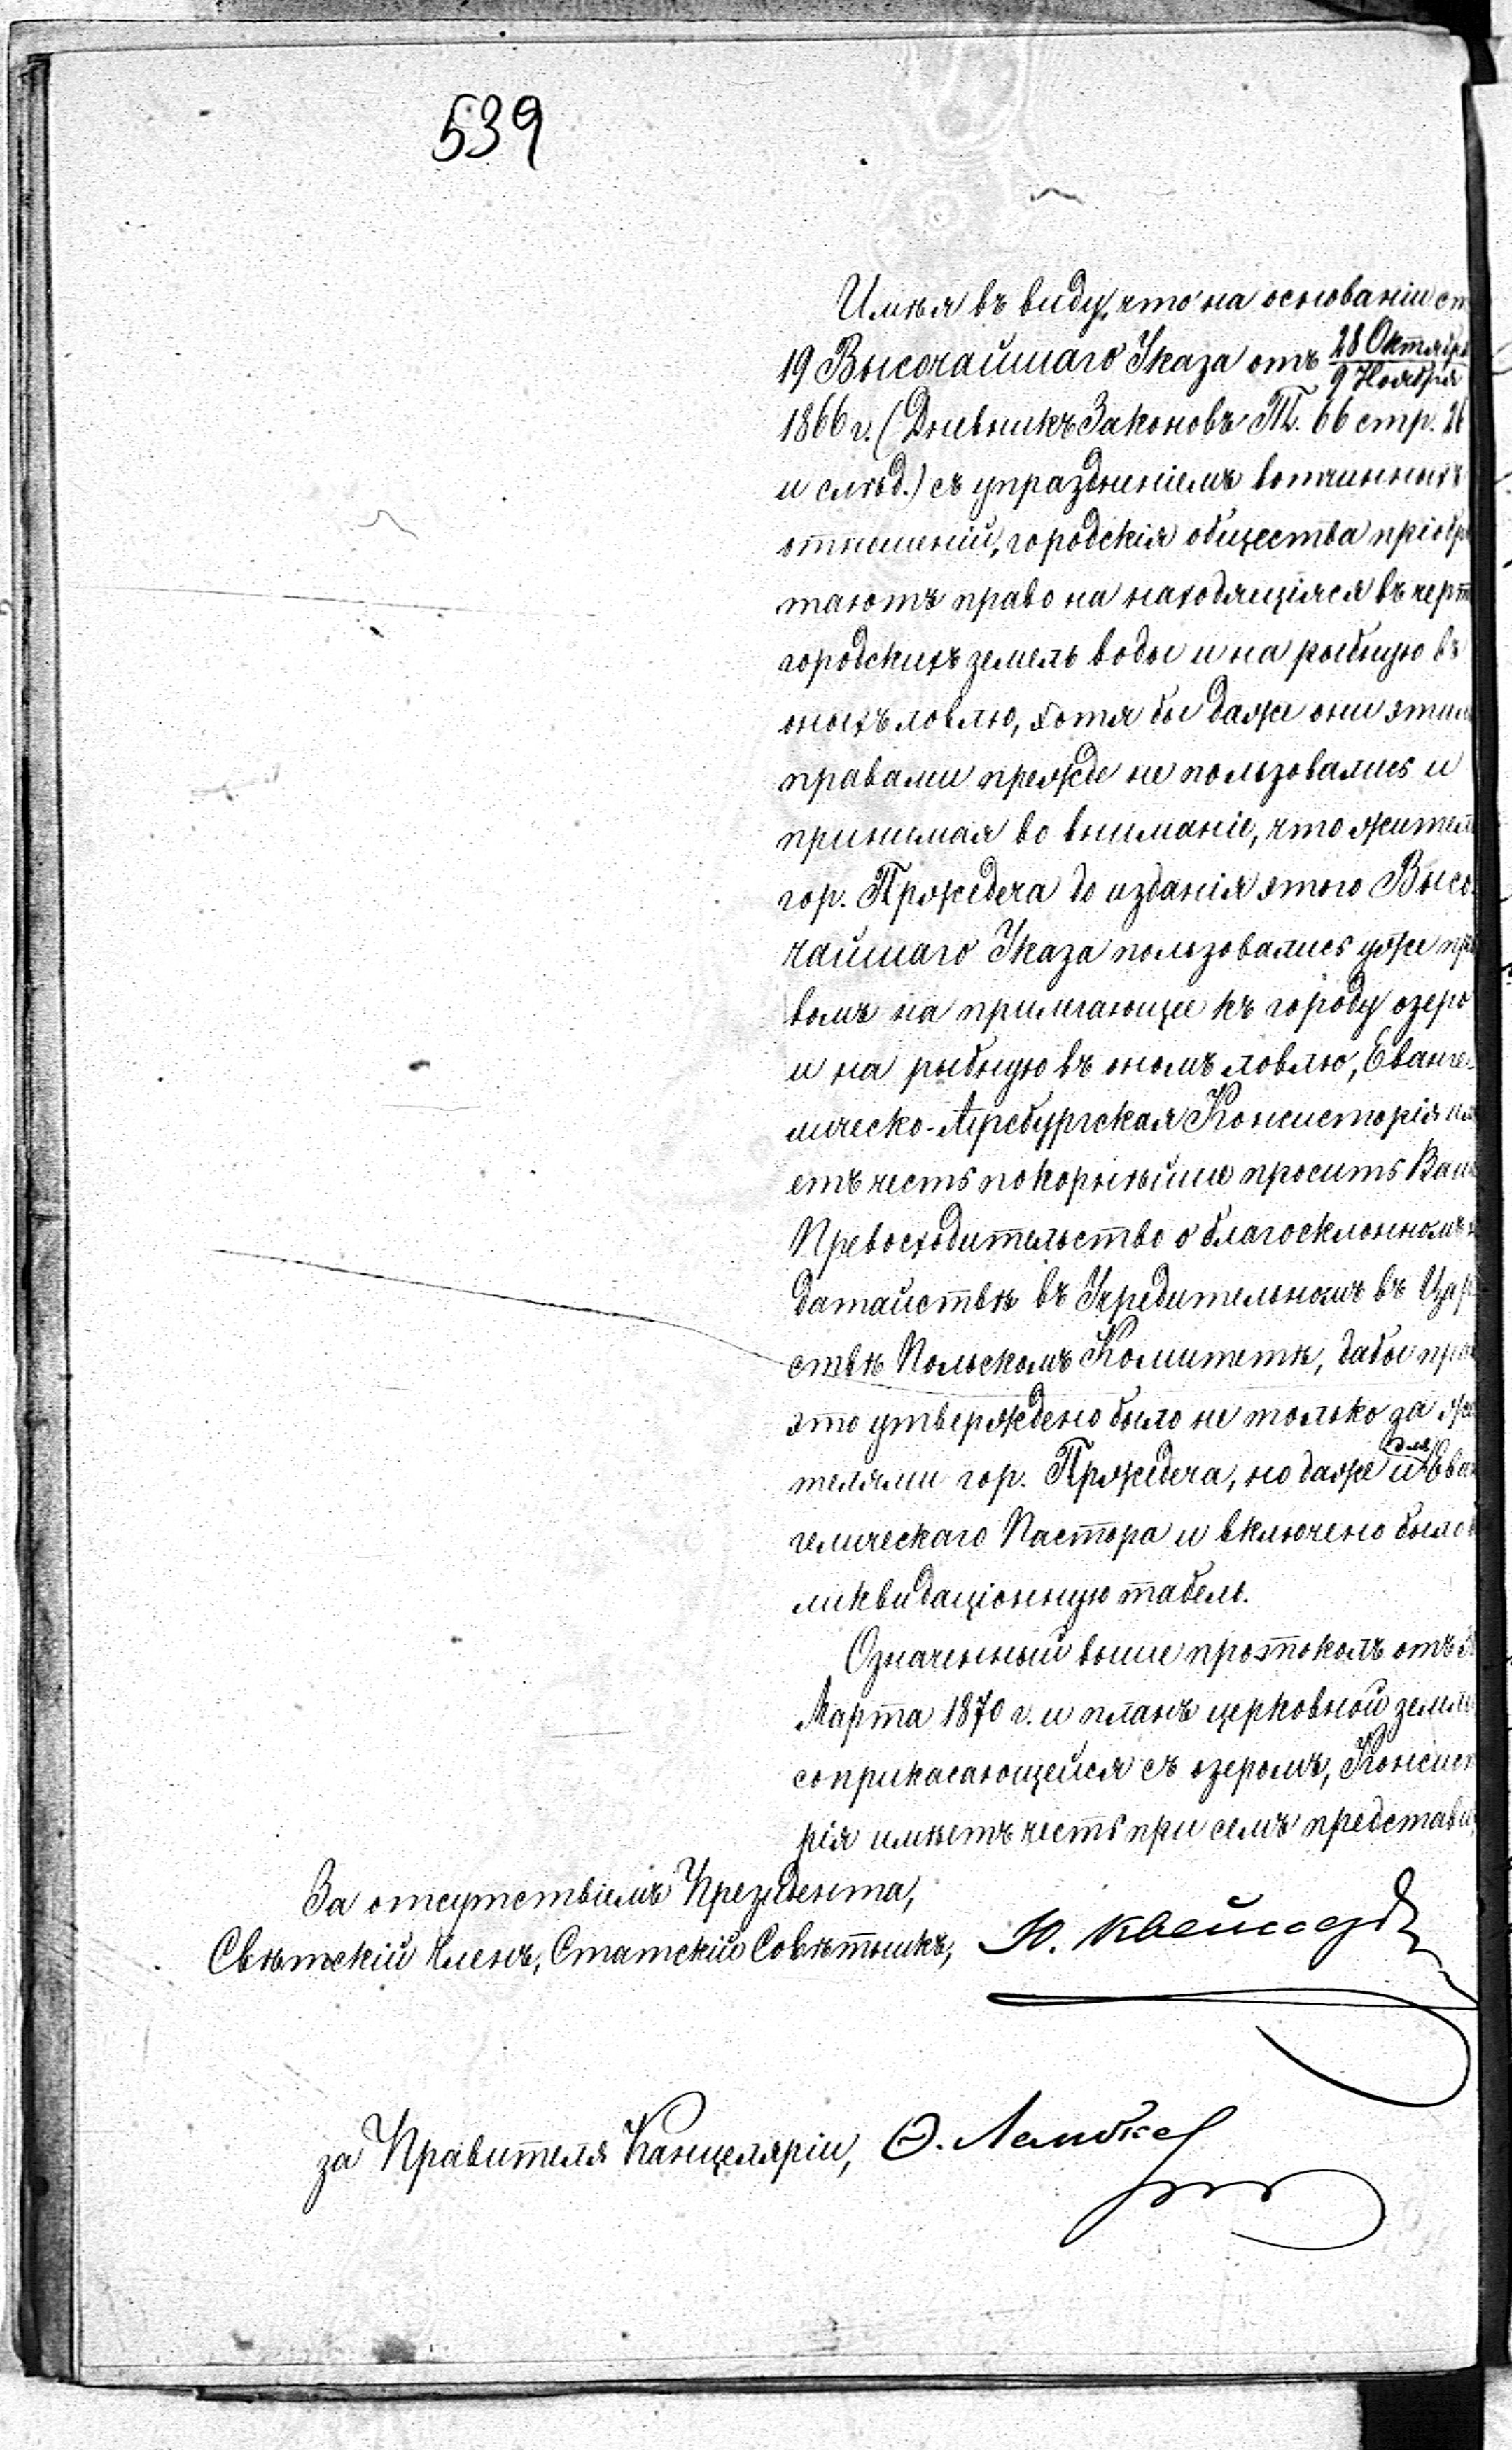 539
Имѣя въ виду, что на основаніи ст
19 Высочайшаго Указа отъ 28 Октября
9 Ноября
1866 г. (Дневникъ Законовъ Т. 66 стр. 26
и слѣд.) съ упраздненіемъ вотчинныхъ
отношеній, городскія общества пріобрѣ
таютъ право на находящіяся въ черт
городскихъ земель воды и на рыбную въ
оныхъ ловлю, хотя бы даже они этим
правами прежде не пользовались и
принимая во вниманіе, что жител
гор. Пржедеча до изданія этого Высо-
чайшаго Указа пользовались уже пра
вомъ на прилегающее къ городу озеро
и на рыбную въ ономъ ловлю, Еванге-
лическо-Аугсбургская Консисторія им
етъ честь покорнѣйше просить Ваш
Превосходительство о благосклонномъ х
датайствѣ въ Учредительномъ въ Цар
ствѣ Польскомъ Комитетѣ, дабы прав
это утверждено было не только за жи
телями гор. Пржедеча, но даже и для Еван
гелическаго Пастора и включено было в
ликвидаціонную табель.
Означенный выше протоколъ отъ
Марта 1870 г. и планъ церковной земли
соприкасающейся съ озеромъ, Консист
рія имѣетъ честь при семъ представи
За отсутствіемъ Президента,
Свѣтскій Членъ, Статскій Совѣтникъ,
за Правителя Канцеляріи,